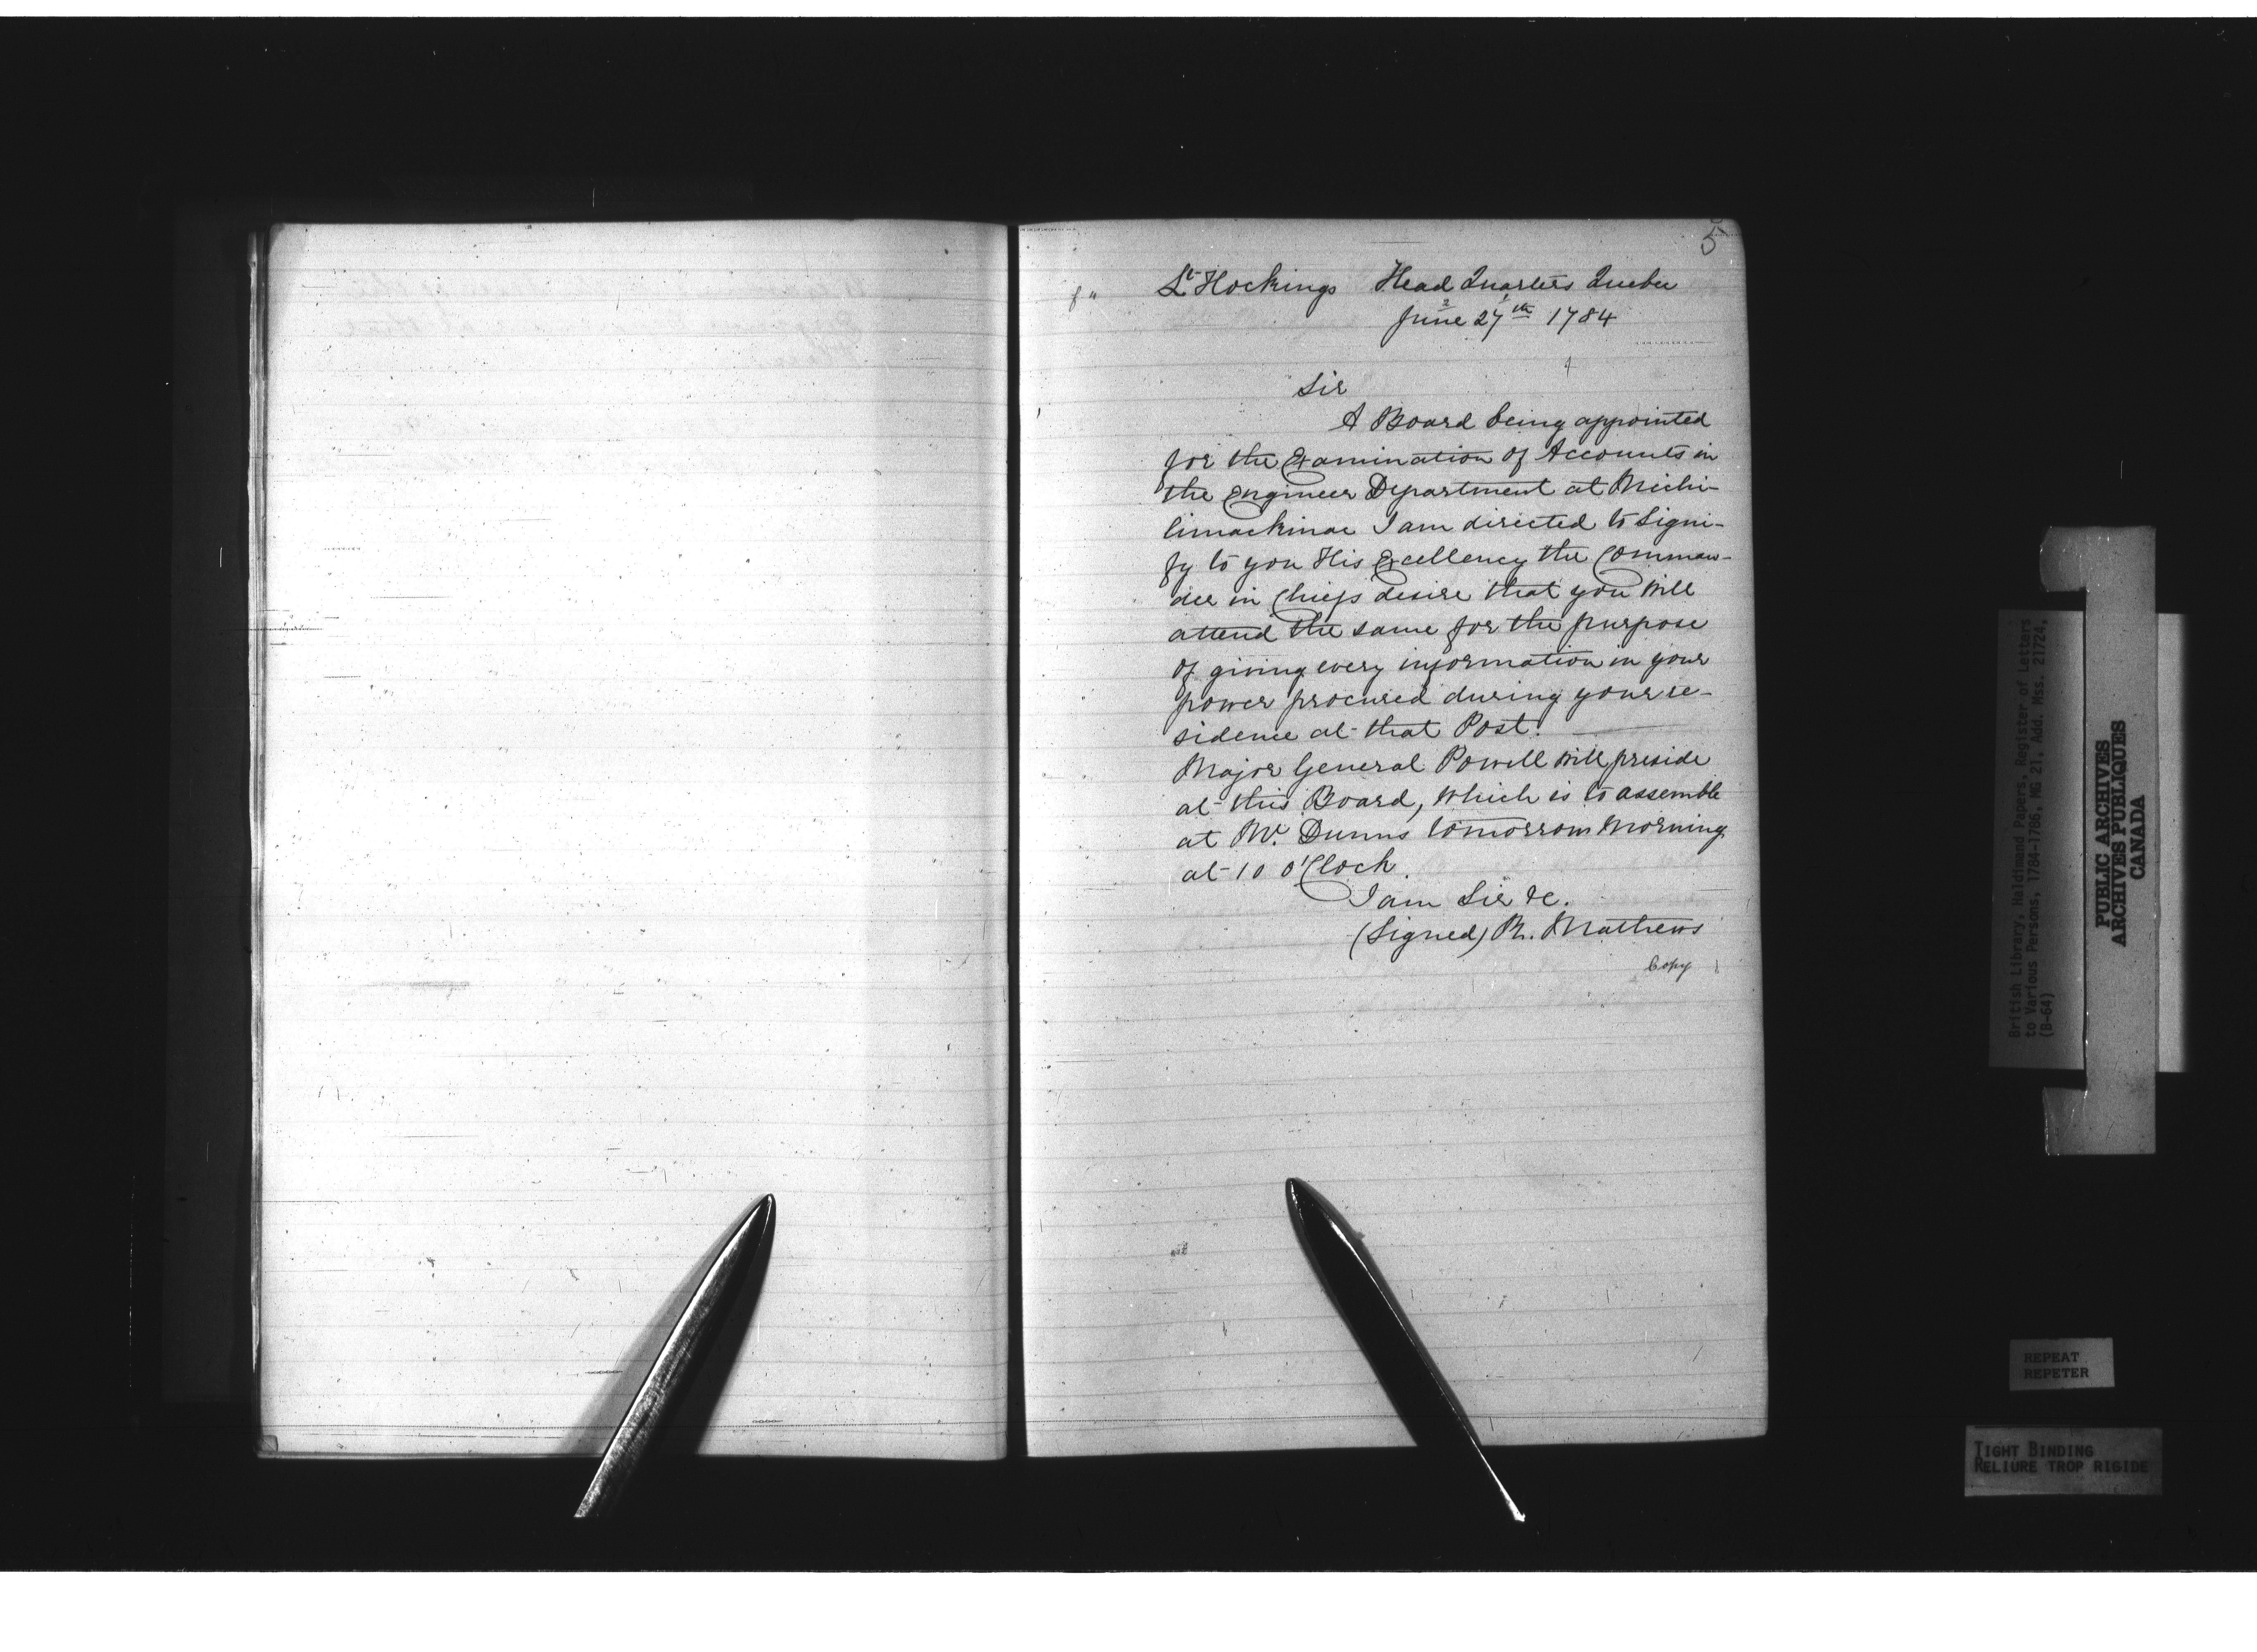 5
f "
Lt Hockings Head Quarters Quebec
June 27th 1784
Sir
A Board being appointed
for the Examination of Accounts in
the Engineer Department at Michi-
limackinac I am directed to Signi-
fy to you His Excellency the Comman-
der in Chiefs desire that you will
attend the same for the purpose
of giving every information in your
power procured during your re-
sidence at that Post.
Major General Powell will preside
at this Board, which is to assemble
at Mr. Dunns tomorrow Morning
at 10 O'Clock.
I am Sir &c.
(Signed) R. Mathews
Copy
British Library, Haldimand Papers, Register of Letters
to Various Persons, 1784-1786, MG 21, Add. Mss. 21724,
(B-64)
PUBLIC ARCHIVES
ARCHIVES PUBLIQUES
CANADA
REPEAT
REPETER
TIGHT BINDING
RELIURE TROP RIGIDE